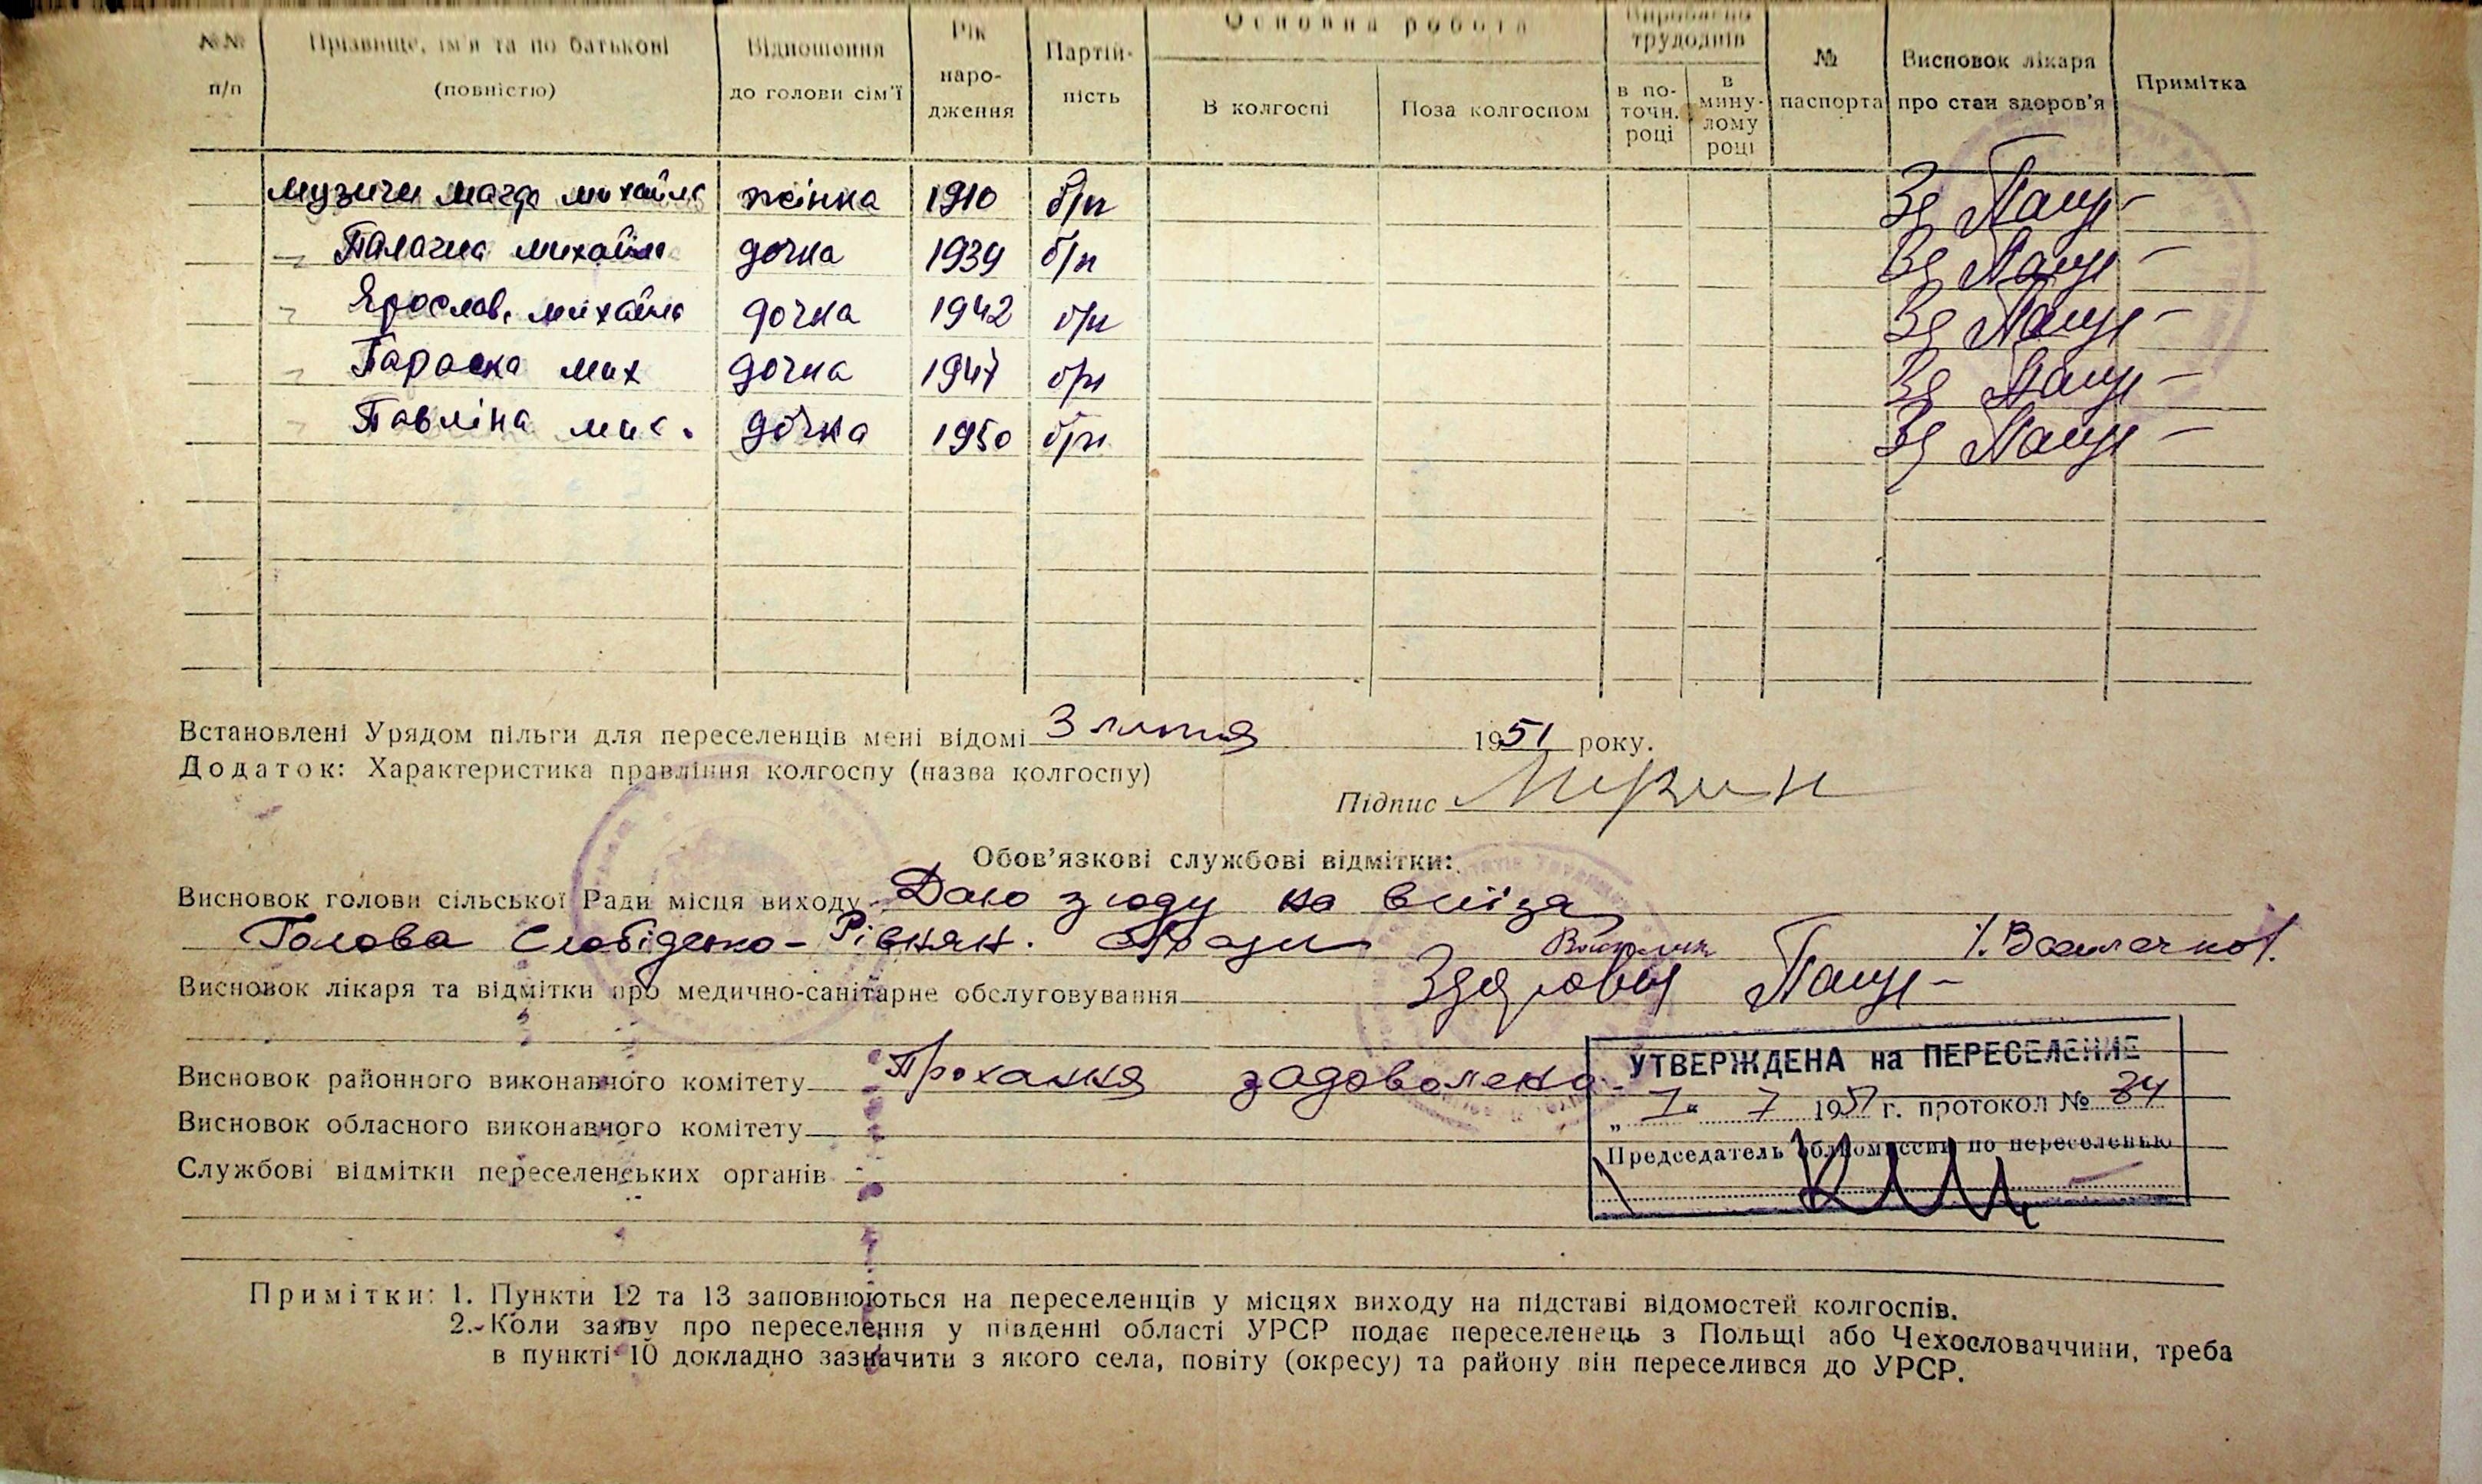 №№ п/п | Прізвище, ім'я та по батькові (повністю) | Відношення до голови сім'ї | Рік народження | Партійність | Основна робота | В колгоспі | Поза колгоспом | Вироблено трудоднів | в поточн. році | в минулому році | № паспорта | Висновок лікаря про стан здоров'я | Примітка
михайл жінка 1910 б/п Зд
михайл дочка 1939 б/п Зд
Ярослав. михайл дочка 1942 б/п Зд
Параска мих дочка 1947 б/п Зд
Павліна мих. дочка 1950 б/п Зд
Встановлені Урядом пільги для переселенців мені відомі 3 липня 1951 року.
Додаток: Характеристика правління колгоспу (назва колгоспу)
Підпис
Обов'язкові службові відмітки:
Висновок голови сільської Ради місця виходу Даю згоду на виїзд
Голова Слобідсько-Рівнян. с/Ради
Висновок лікаря та відмітки про медично-санітарне обслуговування Здорові
Висновок районного виконавчого комітету Прохання задоволено.
УТВЕРЖДЕНА на ПЕРЕСЕЛЕНИЕ
Висновок обласного виконавчого комітету
„ 7 “ 7 1951 г. протокол № 34
Председатель облкомиссии по переселению
Службові відмітки переселенських органів
Примітки: 1. Пункти 12 та 13 заповнюються на переселенців у місцях виходу на підставі відомостей колгоспів.
2. Коли заяву про переселення у південні області УРСР подає переселенець з Польщі або Чехословаччини, треба
в пункті 10 докладно зазначити з якого села, повіту (окресу) та району він переселився до УРСР.